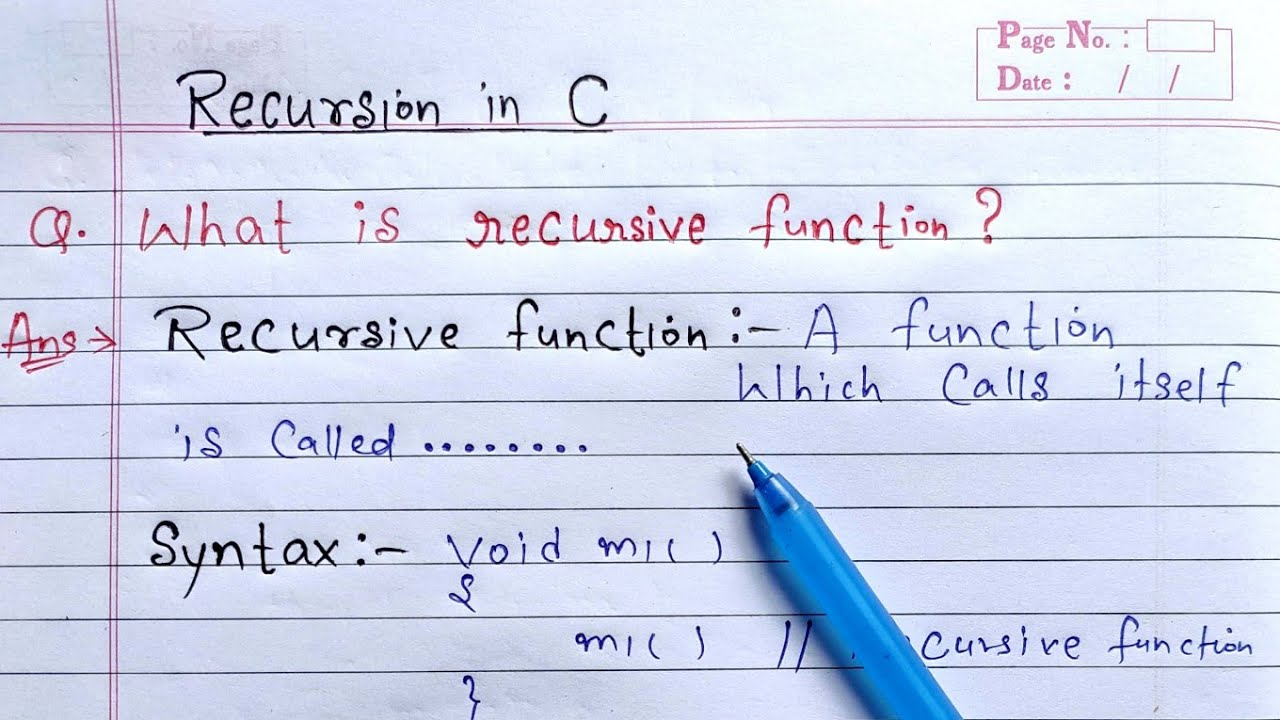 Page No. :
Date : / /
Recursion in C
Q. What is recursive function?
Ans → Recursive function :- A function
which calls itself
is called ........
Syntax :- void m1( )
{
m1( ) // cursive function
}